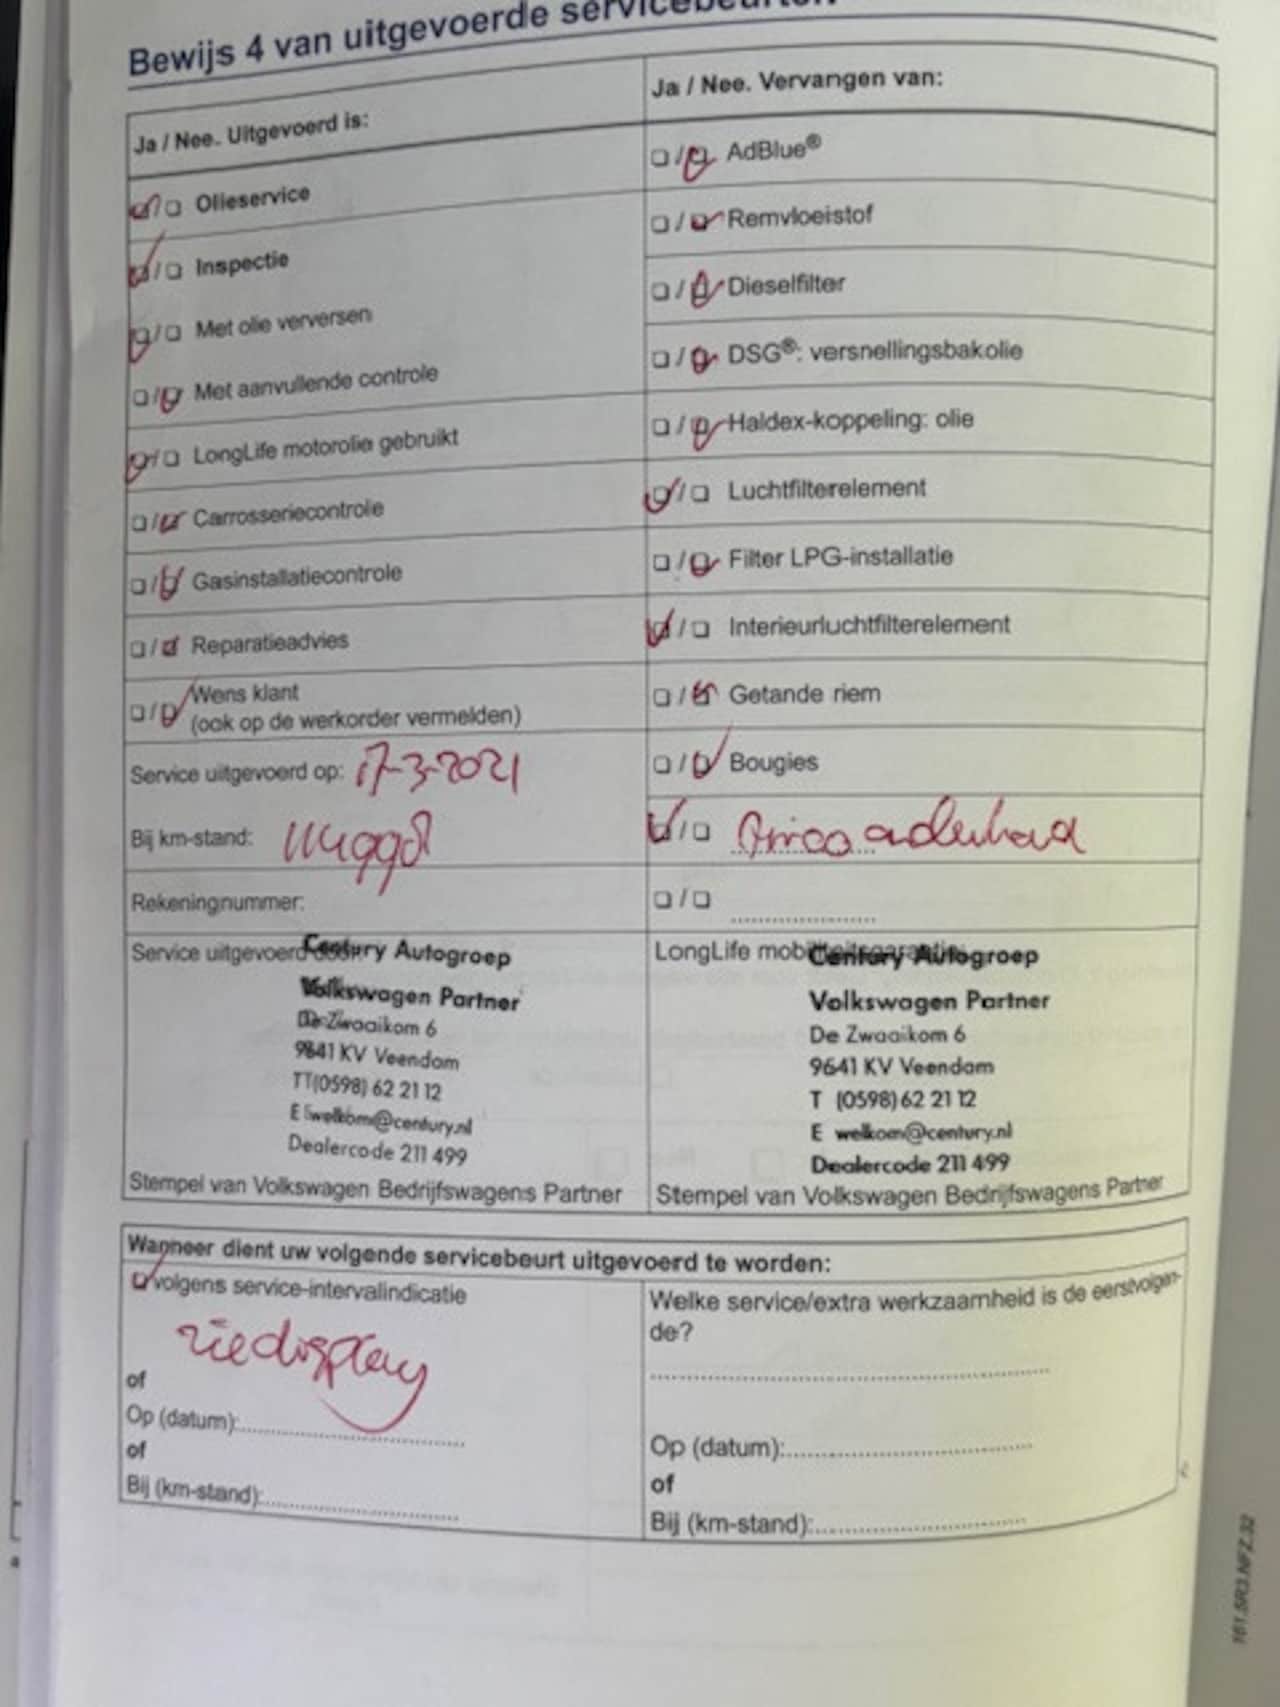 Bewijs 4 van uitgevoerde servicebeurten
Ja / Nee. Uitgevoerd is:
❑/❑ Olieservice
❑/❑ Inspectie
❑/❑ Met olie verversen
❑/❑ Met aanvullende controle
❑/❑ LongLife motorolie gebruikt
❑/❑ Carrosseriecontrole
❑/❑ Gasinstallatiecontrole
❑/❑ Reparatieadvies
❑/❑ Wens klant
(ook op de werkorder vermelden)
Service uitgevoerd op: 17-3-2021
Bij km-stand:
Rekeningnummer:
Service uitgevoerd door:
Century Autogroep
Volkswagen Partner
De Zwaaikom 6
9641 KV Veendam
T (0598) 62 21 12
E welkom@century.nl
Dealercode 211 499
Stempel van Volkswagen Bedrijfswagens Partner
Ja / Nee. Vervangen van:
❑/❑ AdBlue®
❑/❑ Remvloeistof
❑/❑ Dieselfilter
❑/❑ DSG®: versnellingsbakolie
❑/❑ Haldex-koppeling: olie
❑/❑ Luchtfilterelement
❑/❑ Filter LPG-installatie
❑/❑ Interieurluchtfilterelement
❑/❑ Getande riem
❑/❑ Bougies
❑/❑ onderhoud
❑/❑ ....................
LongLife mobiliteitsgarantie:
Century Autogroep
Volkswagen Partner
De Zwaaikom 6
9641 KV Veendam
T (0598) 62 21 12
E welkom@century.nl
Dealercode 211 499
Stempel van Volkswagen Bedrijfswagens Partner
Wanneer dient uw volgende servicebeurt uitgevoerd te worden:
❑ volgens service-intervalindicatie
zie display
of
Op (datum):..............................
of
Bij (km-stand):..............................
Welke service/extra werkzaamheid is de eerstvolgen-
de?
..................................................
Op (datum):..............................
of
Bij (km-stand):..............................
161.5R3.NFZ.32